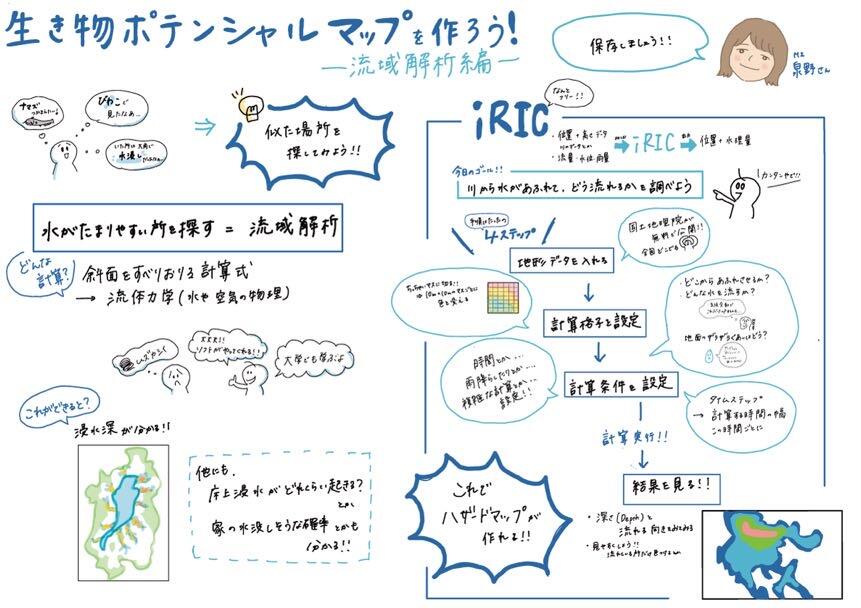 生き物ポテンシャルマップを作ろう!
―流域解析編―
保存しましょう!!
M2
泉野さん
ナマズ
びわこで
見たなあ…
水浸し
⇒
似た場所を
探してみよう!!
水がたまりやすい所を探す = 流域解析
どんな
計算?
斜面をすべりおりる計算式
→ 流体力学(水や空気の物理)
ムズかしく
大丈夫!!
ソフトがやってくれる!!
大学でも学ぶよ
これができると?
浸水深が分かる!!
他にも、
床上浸水がどれくらい起きる?
とか
家の水没しそうな確率とかも
分かる!!
iRIC
なんと
フリー!!
・位置+高さデータ
・流量・水位・雨量
iRIC
位置+水理量
今日のゴール!!
川から水があふれて、どう流れるかを調べよう
カンタンや!!
4ステップ
地形データを入れる
国土地理院が
無料で公開!!
全国どこでも
ちっちゃいマスに切る!!
⇒10m×10mのマスごとに
色を変える
計算格子を設定
・どこからあふれさせるか?
どんな水を流すか?
・地面のザラザラぐあいはどう?
時間とか…
雨降らしたりとか…
複雑な計算とか…
設定!!
計算条件を設定
タイムステップ
→ 計算する時間の幅
この時間ごとに
計算実行!!
結果を見る!!
これで
ハザードマップが
作れる!!
・深さ(Depth)と
流れる向きをみてみる
・見やすくしよう!!